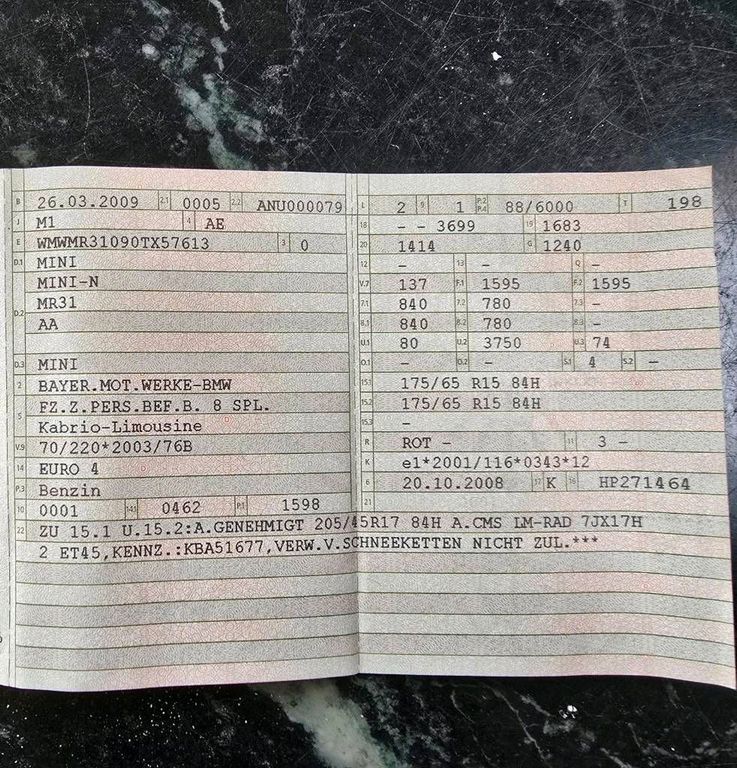 B 26.03.2009 2.1 0005 2.2 ANU000079
J M1 4 AE
E WMWMR31090TX57613 3 0
D.1 MINI
MINI-N
D.2 MR31
AA
D.3 MINI
2 BAYER.MOT.WERKE-BMW
5 FZ.Z.PERS.BEF.B. 8 SPL.
Kabrio-Limousine
V.9 70/220*2003/76B
14 EURO 4
P.3 Benzin
10 0001 14.1 0462 P.1 1598
L 2 9 1 P.2 P.4 88/6000 T 198
18 - - 3699 19 1683
20 1414 G 1240
12 - 13 - Q -
V.7 137 F.1 1595 F.2 1595
7.1 840 7.2 780 7.3 -
8.1 840 8.2 780 8.3 -
U.1 80 U.2 3750 U.3 74
O.1 - O.2 - S.1 4 S.2 -
15.1 175/65 R15 84H
15.2 175/65 R15 84H
15.3 -
R ROT - 11 3 -
K e1*2001/116*0343*12
6 20.10.2008 17 K 16 HP271464
21
22 ZU 15.1 U.15.2:A.GENEHMIGT 205/45R17 84H A.CMS LM-RAD 7JX17H
2 ET45,KENNZ.:KBA51677,VERW.V.SCHNEEKETTEN NICHT ZUL.***